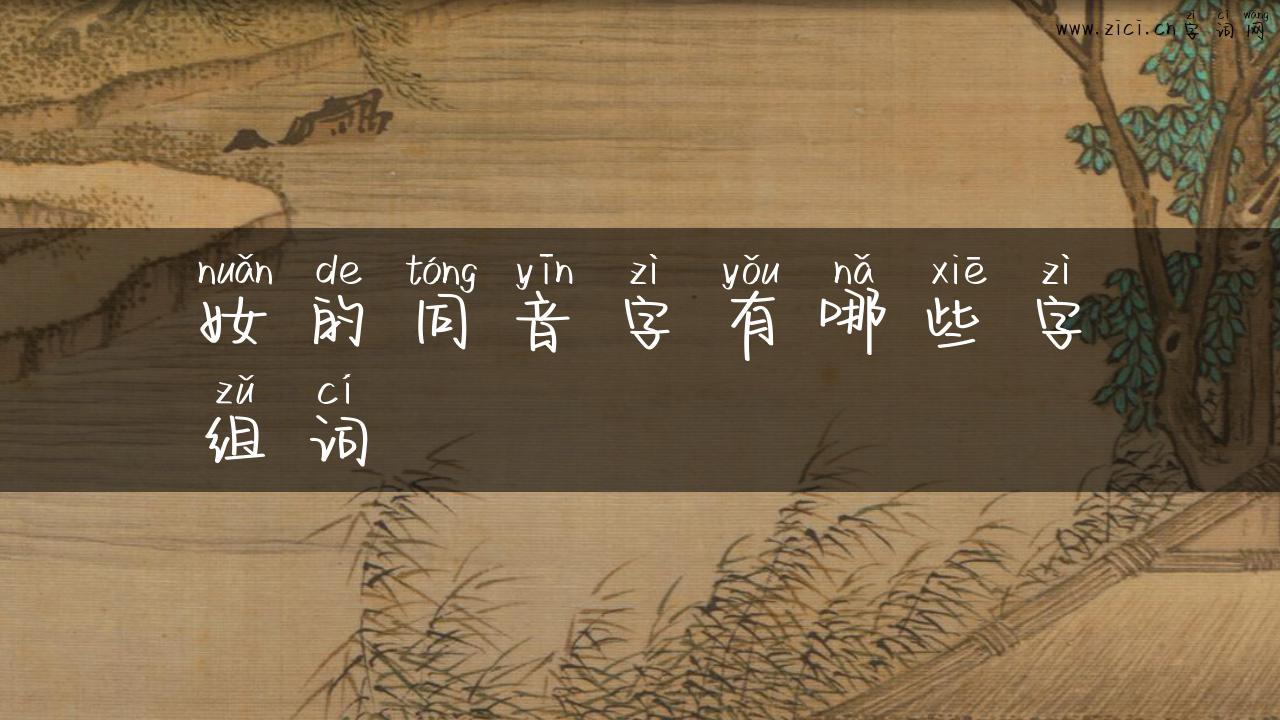 zì cí wǎng
www.zici.cn字词网
nuǎn de tóng yīn zì yǒu nǎ xiē zì
奻的同音字有哪些字
zǔ cí
组词